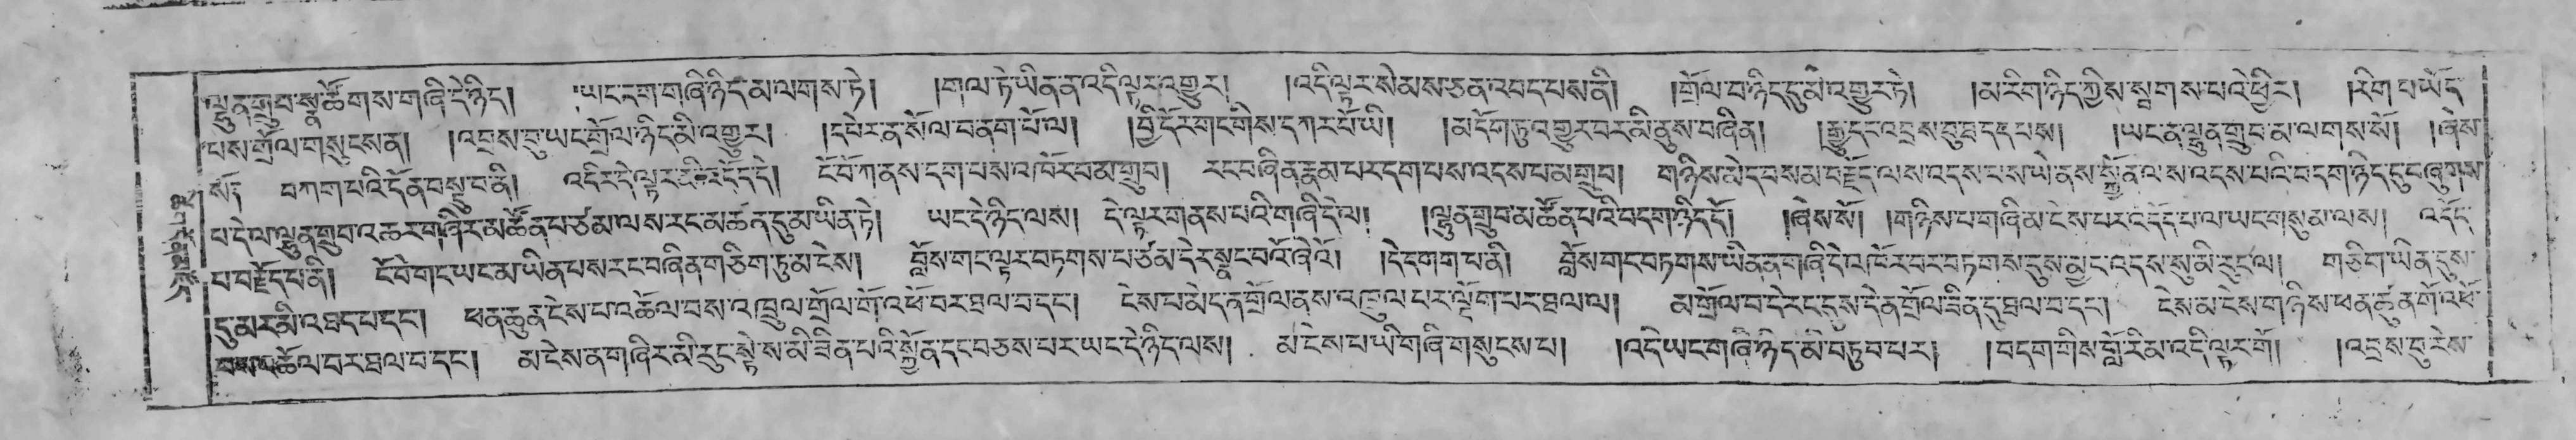 ལྷུན་གྲུབ་སྣ་ཚོགས་གཞི་དེ་ཉིད། །ཡང་དག་གཞི་ཉིད་མ་ལགས་ཏེ། །གལ་ཏེ་ཡིན་ན་འདི་ལྟར་འགྱུར། །འདི་ལྟར་སེམས་ཅན་འབད་པས་ནི། །གྲོལ་བ་ཉིད་དུ་མི་འགྱུར་ཏེ། །མ་རིག་ཉིད་ཀྱིས་སྦགས་པའི་ཕྱིར། །རིག་པ་ཡོད་
པས་གྲོལ་གསུངས་ན། །འབྲས་བུ་ཡང་གྲོལ་ཉིད་མི་འགྱུར། །དཔེར་ན་སོལ་བ་ནག་པོ་ལ། །བྱི་དོར་གང་གིས་དཀར་པོ་ཡི། །མདོག་ཏུ་འགྱུར་བར་མི་ནུས་བཞིན། །རྒྱུ་དང་འབྲས་བུ་བྲད་དང་པས། །ཡང་ན་ལྷུན་གྲུབ་མ་ལགས་སོ། །ཞེས་
སོ། བཀག་པའི་དོན་བསྡུ་བ་ནི། འདིར་དེ་ལྟར་འདོད་དེ། ངོ་བོ་ཀ་ནས་དག་པས་འཁོར་བ་མ་གྲུབ། རང་བཞིན་རྣམ་པར་དག་པས་འདས་པ་མ་གྲུབ། གཉིས་མེད་པས་མ་བརྗོད་ལས་འདས་པས་ཡེ་ནས་སྐྱོན་ལས་འདས་པའི་བདག་ཉིད་དུ་བཞུགས་
པ་དེ་ལ་ལྷུན་གྲུབ་འཆར་གཞིར་མཚོན་པ་ཙམ་ལས་རང་མཚན་དུ་མ་ཡིན་ཏེ། ཡང་དེ་ཉིད་ལས། དེ་ལྟར་གནས་པའི་གཞི་དེ་ལ། །ལྷུན་གྲུབ་མཚོན་པའི་བདག་ཉིད་དོ། །ཞེས་སོ། །གཉིས་པ་གཞི་མ་ངེས་པར་འདོད་པ་ལ་ཡང་གསུམ་ལས། འདོད་
པ་བརྗོད་པ་ནི། ངོ་བོ་གང་ཡང་མ་ཡིན་པས་རང་བཞིན་གཅིག་ཏུ་མ་ངེས། བློས་གང་ལྟར་བཏགས་པ་ཙམ་དེར་སྣང་བའོ་ཞེའོ། །དེ་དགག་པ་ནི། བློས་གང་བཏགས་ཡིན་ན་གཞི་དེ་ལ་ཁོར་བར་བཏགས་དུས་མྱང་འདས་སུ་མི་རུང་ལ། གཅིག་ཡིན་དུས་
དུ་མར་མི་འཐད་པ་དང༌། ཕན་ཚུན་ངེས་པ་འཚོལ་བས་འཁྲུལ་གྲོལ་གོ་འཕོ་བར་ཐལ་བ་དང༌། ངེས་པ་མེད་ན་གྲོལ་ནས་འཁྲུལ་པར་ལྡོག་པར་ཐལ་ལ། མ་གྲོལ་བ་དེ་རང་དུས་དེན་གྲོལ་ཟིན་དུ་ཐལ་བ་དང༌། ངེས་མ་ངེས་གཉིས་ཕན་ཚུན་གོ་འཕོ་
བས་འཚོལ་བར་ཐལ་བ་དང༌། མ་ངེས་ན་གཞིར་མི་རུང་སྟེ་ས་མི་ཟིན་པའི་སྐྱོན་དང་བཅས་པར་ཡང་དེ་ཉིད་ལས། མ་ངེས་པ་ཡི་གཞི་གསུངས་པ། །འདི་ཡང་གཞི་ཉིད་མི་བཏུབ་པར། །བདག་གིས་བློ་རིམ་འདི་ལྟར་གོ། །འབྲས་བུ་རེས་